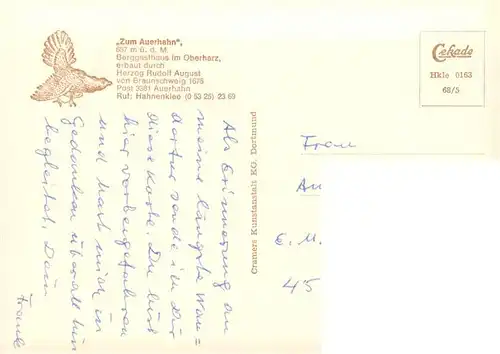 „Zum Auerhahn",
657 m ü. d. M.
Berggasthaus im Oberharz,
erbaut durch
Herzog Rudolf August
von Braunschweig 1678
Post 3381 Auerhahn
Ruf: Hahnenklee (0 53 25) 23 69
Cekade
Hkle 0163
68/5
Cramers Kunstanstalt KG, Dortmund
Als Erinnerung an
meine längste Wan=
derung sende ich Dir
diese Karte. Du bist
hier vorbeigefahren
und hast mich in
Gedanken überall hin
begleitet. Dein
Frank
Frau
An
E. M.
45